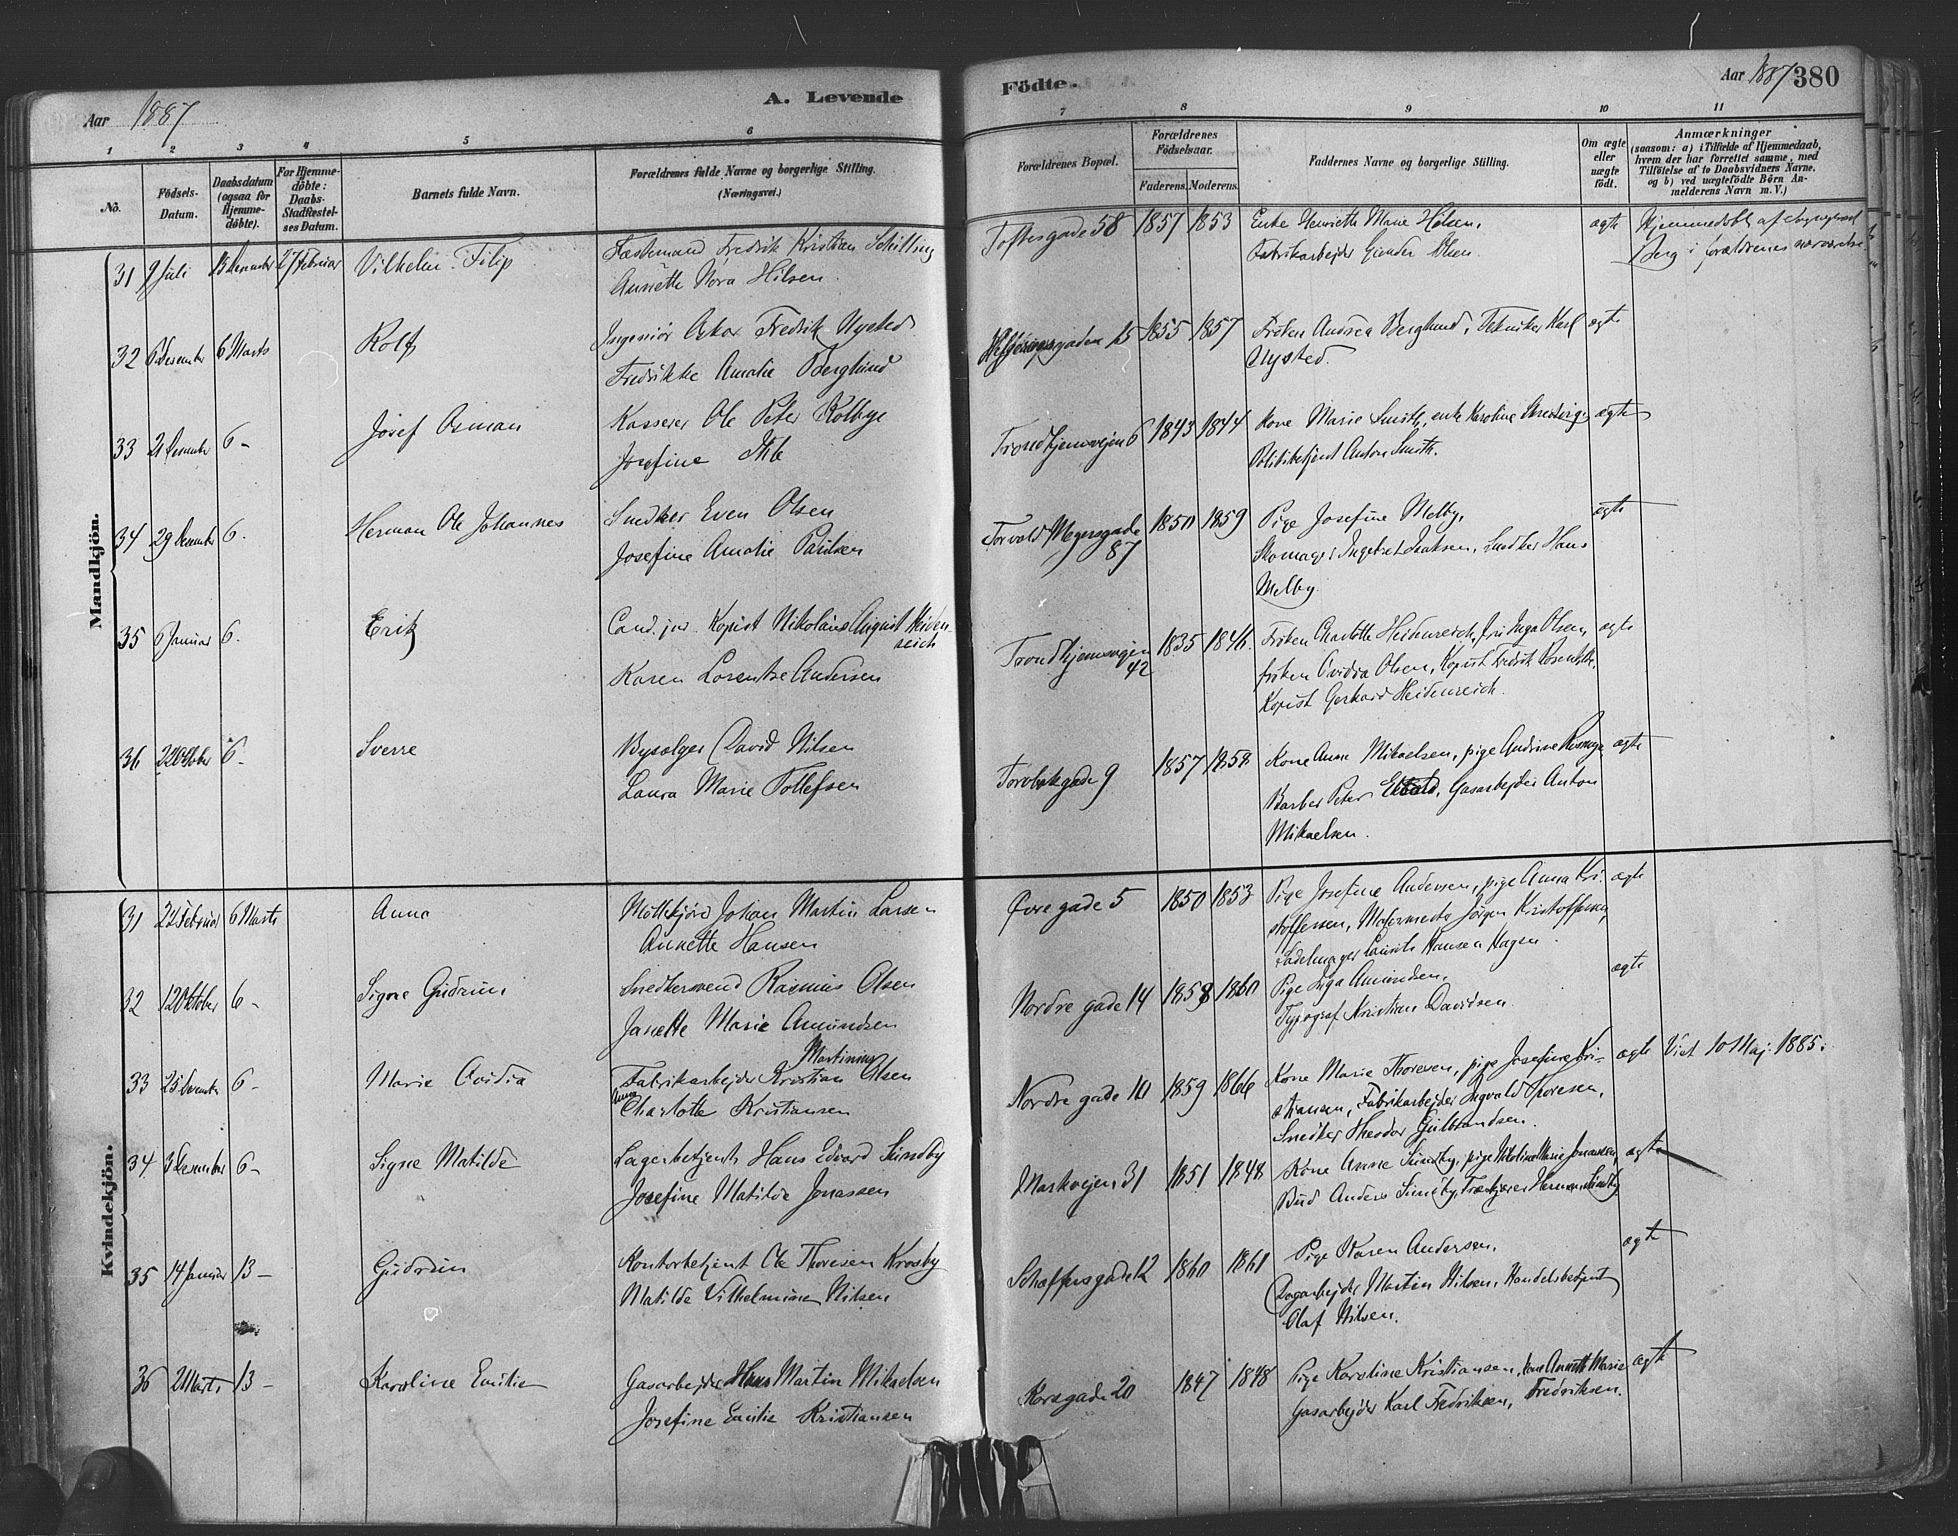 Aar 1887
A. Levende
1 2 3 4 5 6
No.
Födsels-
Datum.
Daabsdatum
(ogsaa for
Hjemme-
döbte).
For Hjemme-
döbte:
Daabs-
Stadfæstel-
ses Datum.
Barnets fulde Navn.
Forældrenes fulde Navne og borgerlige Stilling.
(Næringsvei.)
Mandkjön.
31 9 Juli 27 Februar Vilhelm Filip
Fredrik Kristian Schilling
Annette Nora Hilsen
32 6 Desember 6 Marts Rolf
Ingeniör Oskar Fredrik Nysted
Fredrikke Amalie Berglund
33 21 Desember 6 – Josef Osman
Kasserer Ole Peter Kolbye
Josefine
34 29 Desember 6. Herman Ole Johannes
Snedker Even Olsen
Josefine Amalie Paulsen
35 6 Januar 6. Erik
Cand. jur. Kopist Nikolaus August Heiden-
reich
Karen Lorentse Andersen
36 22 Oktober 6. Sverre
Bysælger David Nilsen
Laura Marie Tollefsen
Kvindekjön.
31 22 Februar 6 Marts Anna
Johan Martin Larsen
Annette Hansen
32 12 Oktober 6 – Signe Gudrun
Snedkersvend Rasmus Olsen
Janette Marie Amundsen
33 25 6 – Marie Ovidia
Martinius
Fabrikarbejder Kristian Olsen
Anna
Charlotte Kristiansen
34 3 Desember 6 – Signe Matilde
Lagerbetjent Hans Edvard Sundby
Josefine Matilde Jonassen
35 14 Januar 13 – Gudrun
Kontorbetjent Ole Thoresen Krosby
Matilde Vilhelmine Nilsen
36 2 Marts 13 – Karoline Emilie
Gasarbejder Hans Martin Mikaelsen
Josefine Emilie Kristiansen
Födte.
Aar 1887 380
7 8 9 10 11
Forældrenes Bopæl.
Forældrenes
Födselsaar.
Faderens. Moderens.
Faddernes Navne og borgerlige Stilling.
Om ægte
eller
uægte
født.
Anmærkninger
(saasom: a) i Tilfælde af Hjemmedaab,
hvem der har forrettet samme, med
Tilföielse af to Daabsvidners Navne.
og b) ved uægtefödte Börn An-
melderens Navn m. V.)
Toftesgade 58 1857 1853 Enke Henriette Marie Hilsen, ægte Hjemmedöbt af
Fabrikarbejder Gunder Olsen. Berg i forældrenes nærværelse
15 1855 1857 Fröken Andrea Berglund, Tekniker Karl ægte
Nysted.
Trondhjemsvejen 6 1843 1844 Kone Marie Smith, enke Karoline ægte
Politibetjent Anton Smith.
Torvald Meyersgade 1850 1859 Pige Josefine Melby, ægte
87 Skomager Ingebret Isaksen, Snedker Hans
Melby.
Trondhjemsvejen 1835 1846. Fröken Charlotte Heidenreich, fru Inga Olsen, ægte
42 fröken Ovidia Olsen, Kopist Fredrik
Kopist Gerhard Heidenreich.
9 1857 1858 Kone Anna Mikaelsen, pige Andrine ægte
Barber Peter Gasarbejder Anton
Mikaelsen.
Övre gade 5 1850 1853 Pige Josefine Andersen, pige Anna Kri- ægte
stoffersen, Jörgen Kristoffersen,
Sadelmager Laurits Hansen Hagen.
Nordre gade 14 1858 1860 Pige Inga Amundsen, ægte
Typograf Kristian Davidsen.
Nordre gade 10 1859 1866 Kone Marie Thoresen, pige Josefine Kri- ægte Viet 10 Maj 1885.
stiansen, Fabrikarbejder Ingvald Thoresen,
Snedker Theodor Gulbrandsen.
Markvejen 31 1851 1848 Kone Anne Sundby, pige Nikoline Marie Jonassen, ægte
Bud Anders Sundby, Herman Sundby
Schaffersgade 12 1860 1861 Pige Karen Andersen, ægte
Dagarbejder Martin Nilsen, Handelsbetjent
Olaf Nilsen.
Korsgade 20 1847 1848 Pige Karoline Kristiansen, kone Annette Marie ægte
Gasarbejder Karl Fredriksen, Fredriksen.